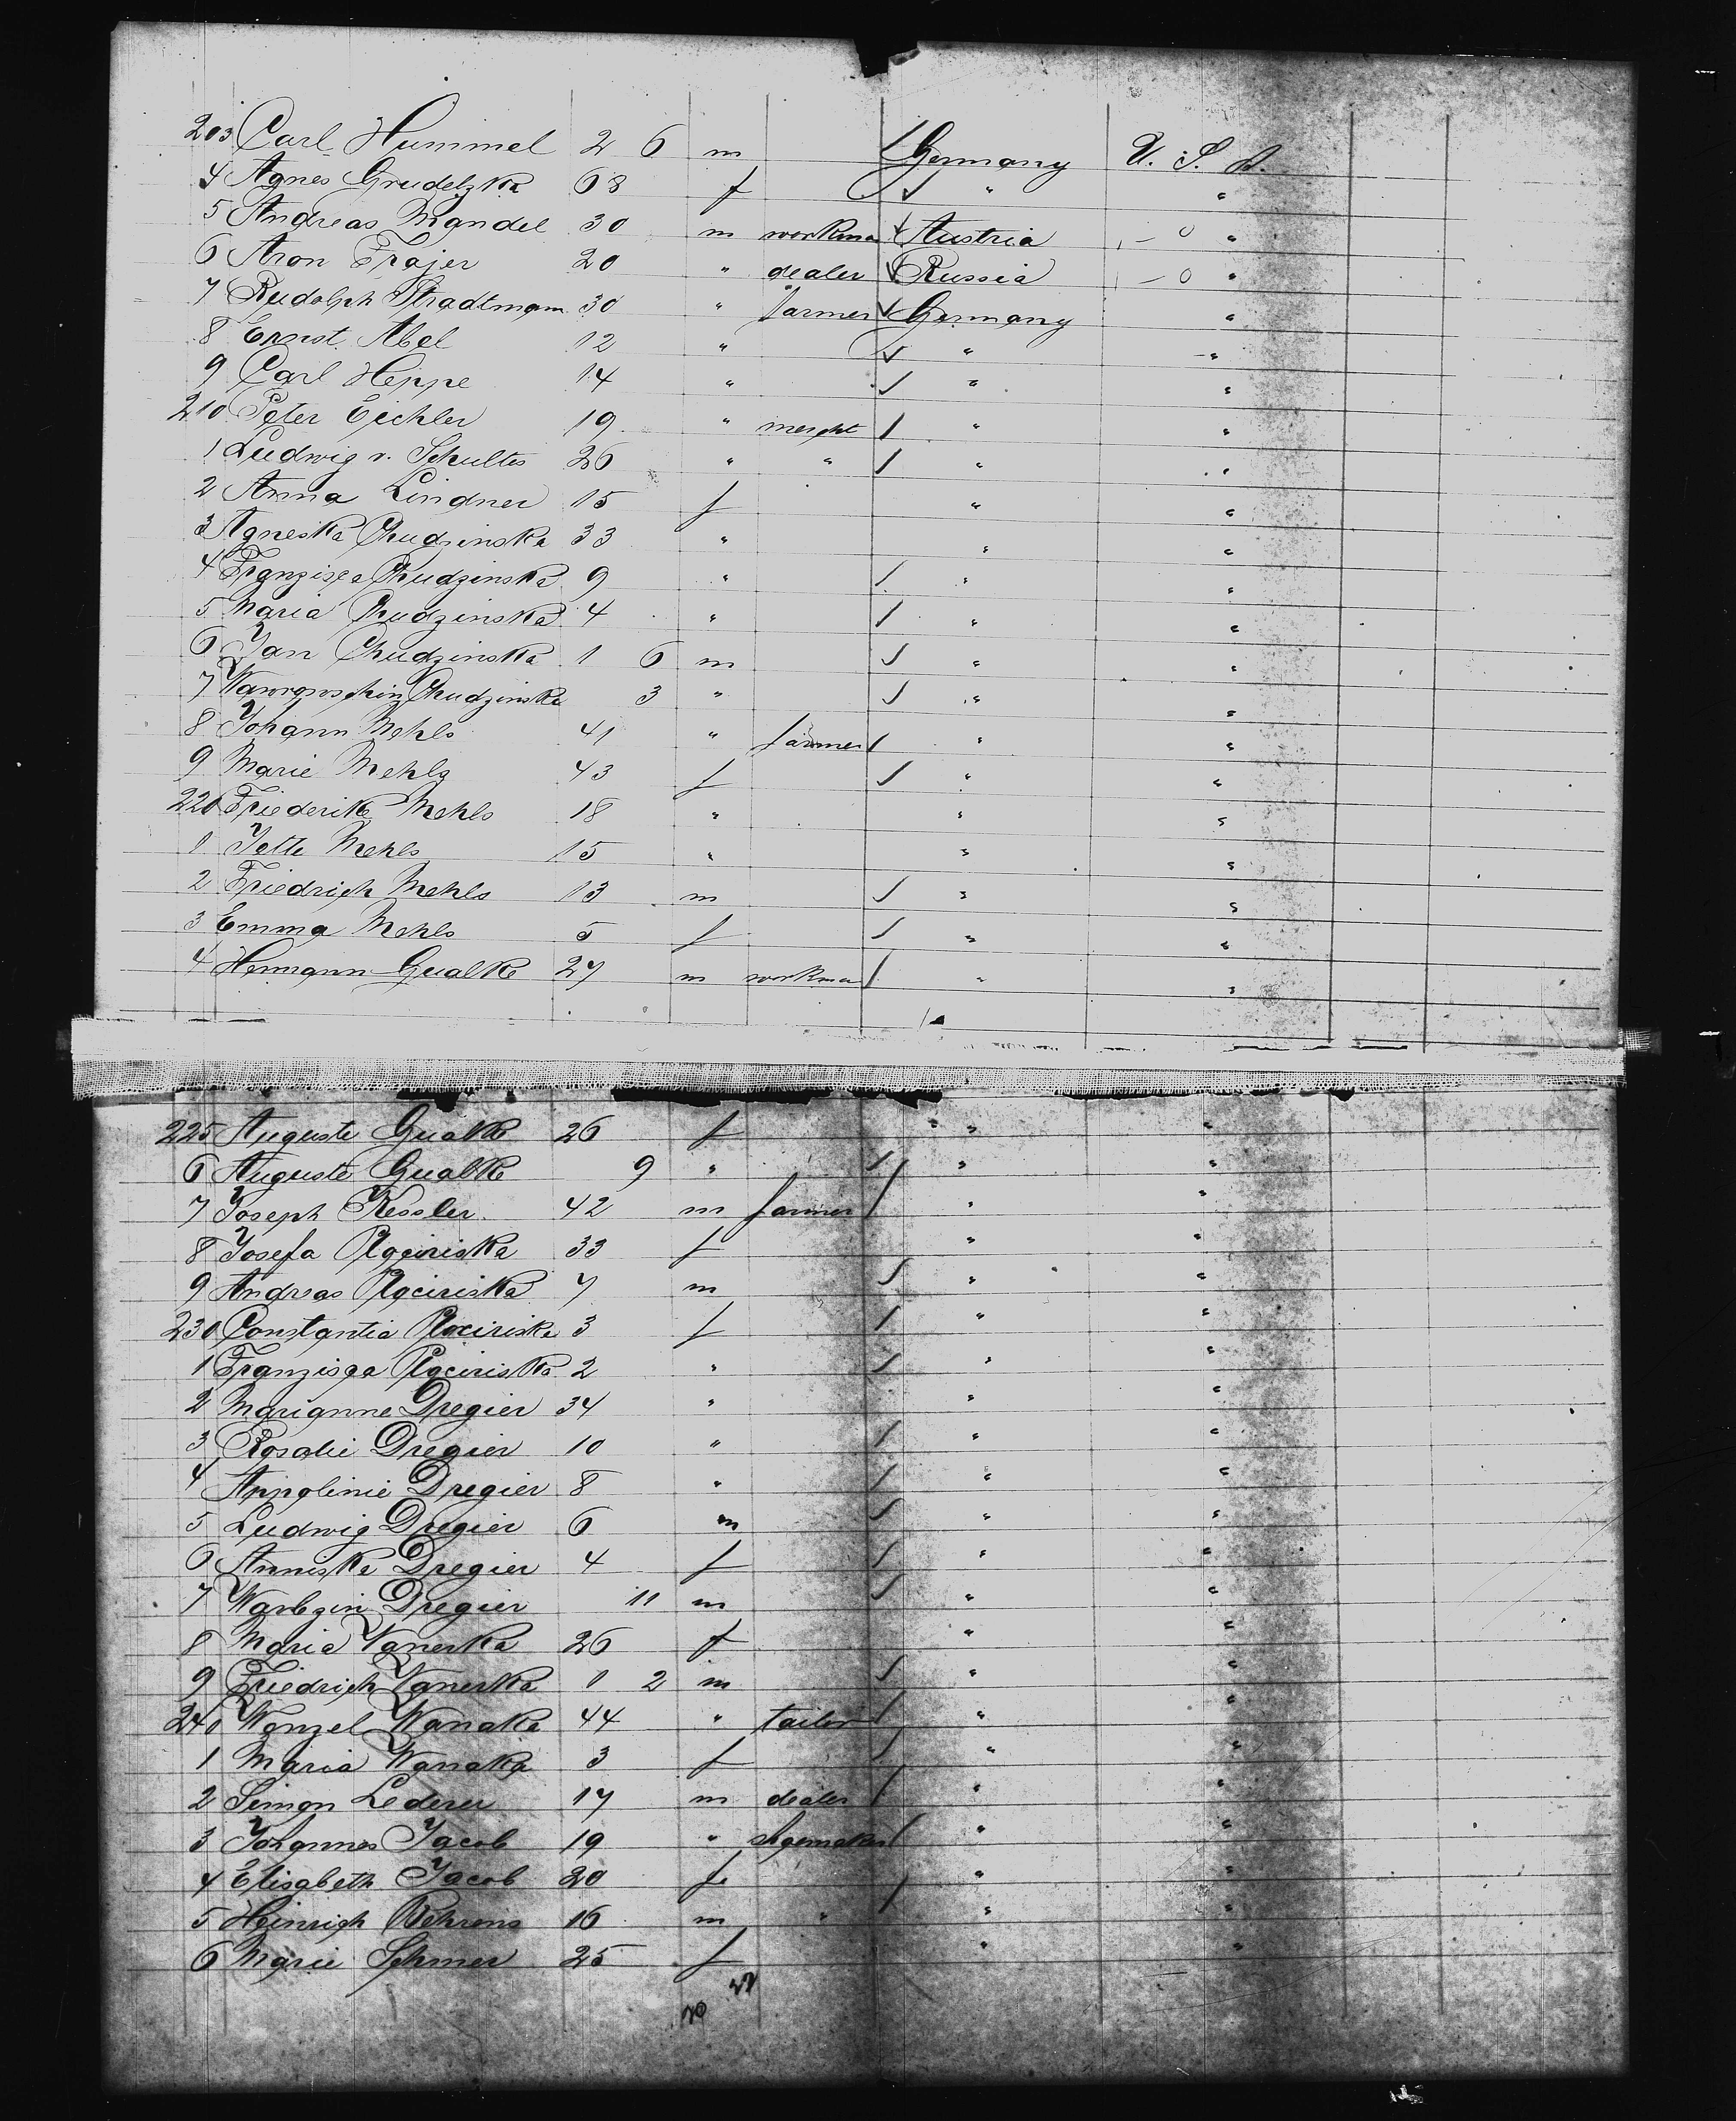 203 Carl Hummel 2 6 m Germany U. S. A.
4 Agnes Grudelzka 68 f " "
5 Andreas Mandel 30 m workman Austria - 0 "
6 Aron Frajer 20 " dealer Russia - 0 "
7 Rudolph Stradtmann 30 " farmer Germany "
8 Ernst Abel 12 " " "
9 Carl Heppe 14 " " "
210 Peter Eichler 19 " mercht " "
1 Ludwig v. Schultes 26 " " " "
2 Anna Lindner 15 f " "
3 Agneska Chudzinska 33 " " "
4 Franzisca Chudzinska 9 " " "
5 Maria Chudzinska 4 " " "
6 Jan Chudzinska 1 6 m " "
7 Chudzinska 3 " " "
8 Johann Mehls 41 " farmer " "
9 Marie Mehls 43 f " "
220 Friederike Mehls 18 " " "
1 Jette Mehls 15 " " "
2 Friedrich Mehls 13 m " "
3 Emma Mehls 5 f " "
4 Hermann Gualke 27 m workman " "
225 Auguste Gualke 26 f " "
6 Auguste Gualke 9 " " "
7 Joseph Kessler 42 m farmer " "
8 Josefa Plociriska 33 f " "
9 Andreas Plociriska 7 m " "
230 Constantia Plociriska 3 f " "
1 Franzisca Plociriska 2 " " "
2 Marianne Dregier 34 " " "
3 Rosalie Dregier 10 " " "
4 Appolinie Dregier 8 " " "
5 Ludwig Dregier 6 m " "
6 Anniska Dregier 4 f " "
7 Warbzin Dregier 11 m " "
8 Maria Vanerka 26 f " "
9 Friedrich Vanerka 1 2 m " "
240 Wenzel Wanaka 44 " tailor " "
1 Maria Wanaka 3 f " "
2 Simon Lederer 17 m dealer " "
3 Johannes Jacob 19 " shoemaker " "
4 Elisabeth Jacob 20 f " "
5 Heinrich Behrens 16 m " " "
6 Marie Schmer 25 f " "